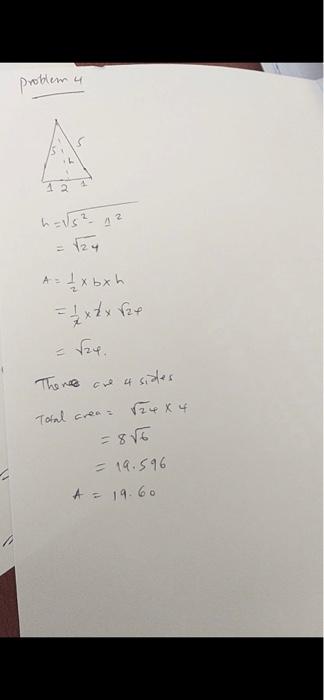 Problem 4
5 5
h
1 2 1
h = √5² - 1²
= √24
A = 1/2 × b × h
= 1/2 × 2 × √24
= √24.
There are 4 sides
Total area = √24 × 4
= 8√6
= 19.596
A = 19.60